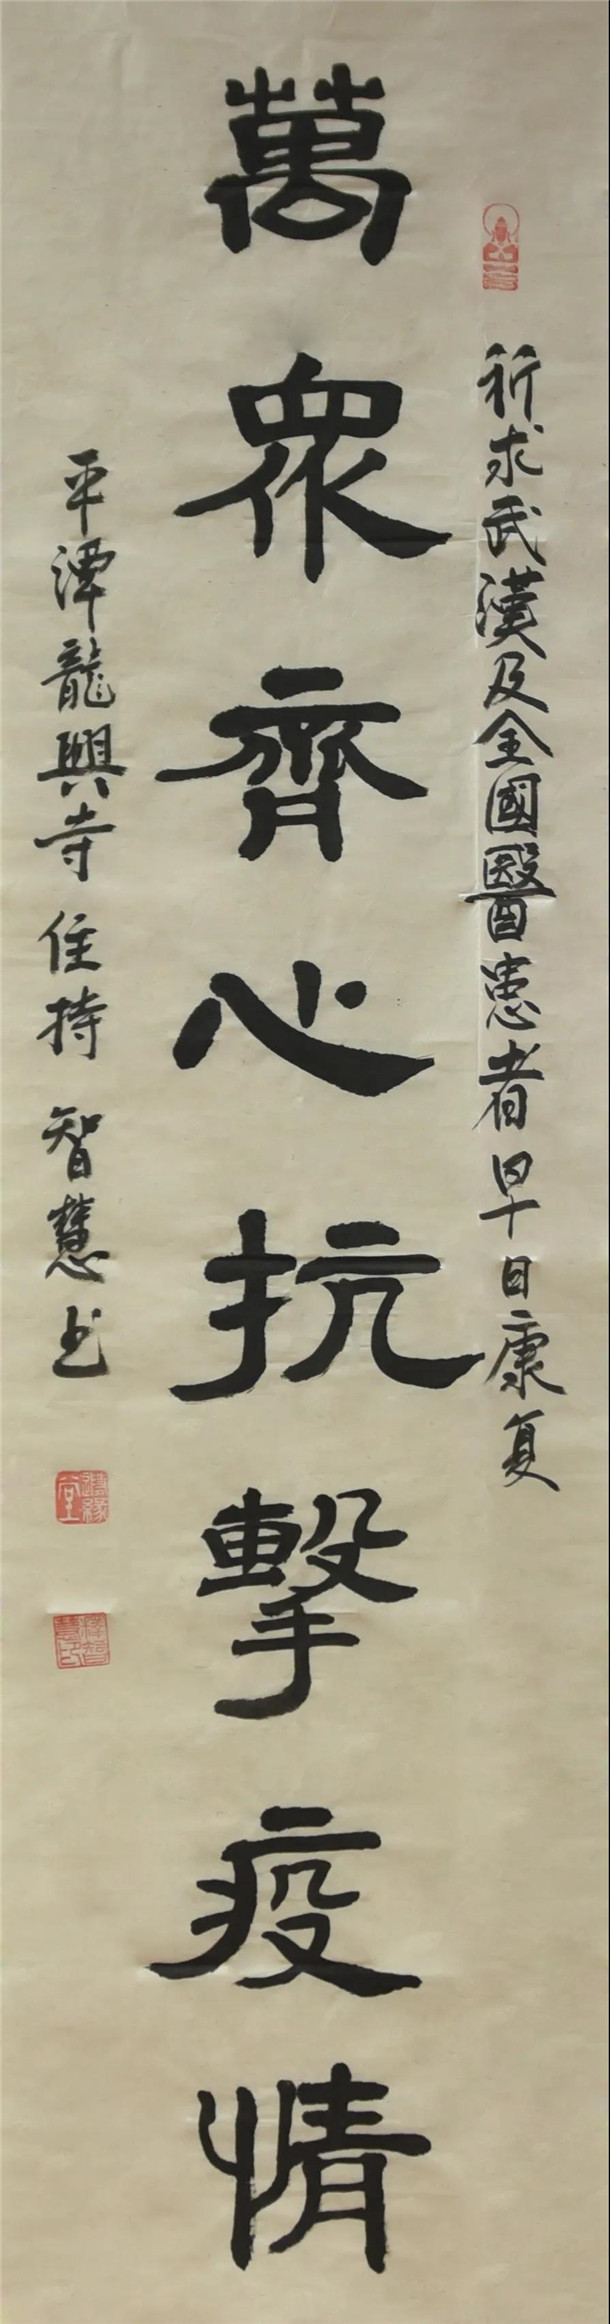 祈求武漢及全國醫患者早日康复
萬眾齊心抗擊疫情
平潭龍興寺住持智慧书